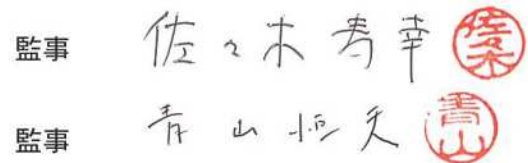 監事 佐々木寿幸 佐々木
監事 青山恒夫 青山